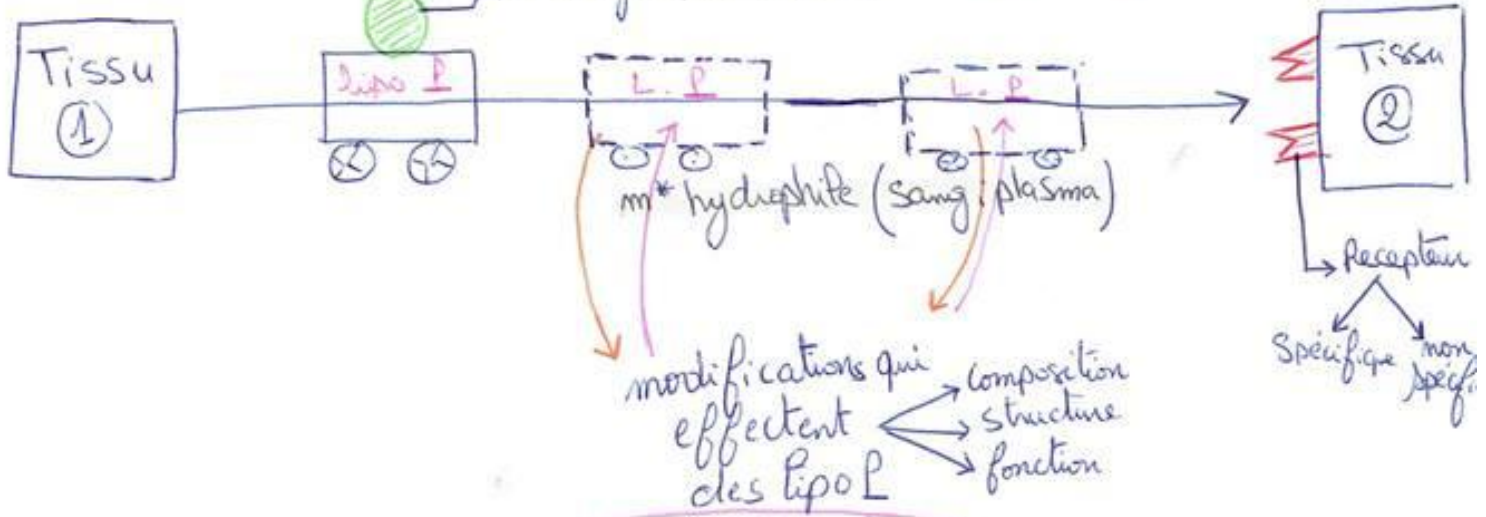 Tissu
①
lipo P
L. P
L. P
Tissu
②
m* hydrophile (sang plasma)
Recepteur
Spécifique
non
spécifi
modifications qui
effectent
des lipo P
composition
structure
fonction